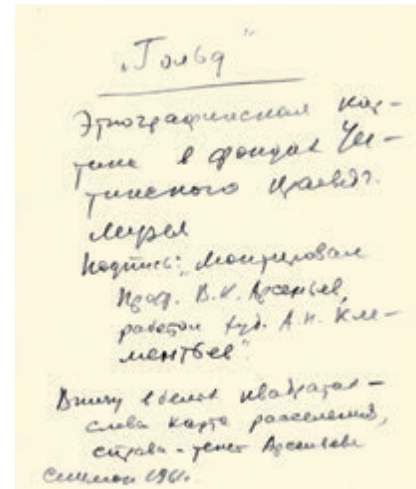 „Гольд“
Этнографическая кар-
тина в фондах Чи-
тинского краевед.
музея
Подпись: „Монтировал
Проф. В.К. Арсеньев,
работал худ. А.Н. Кле-
ментьев“.
Внизу в белых квадратах –
слева карта расселения,
справа – текст Арсеньева
1961.